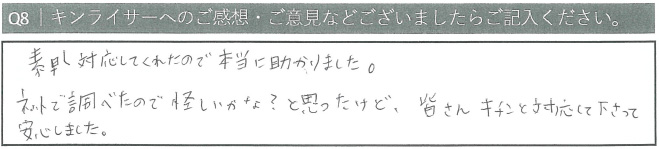 Q8 | キンライサーへのご感想・ご意見などございましたらご記入ください。
素早く対応してくれたので本当に助かりました。
ネットで調べたので怪しいかな？と思ったけど、皆さんキチンと対応して下さって
安心しました。